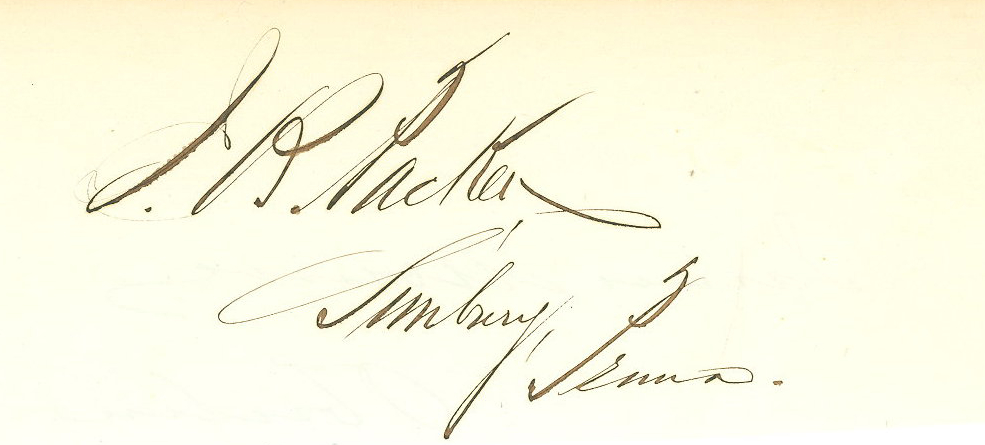 J. B. Packer,
Sunbury,
Penna.